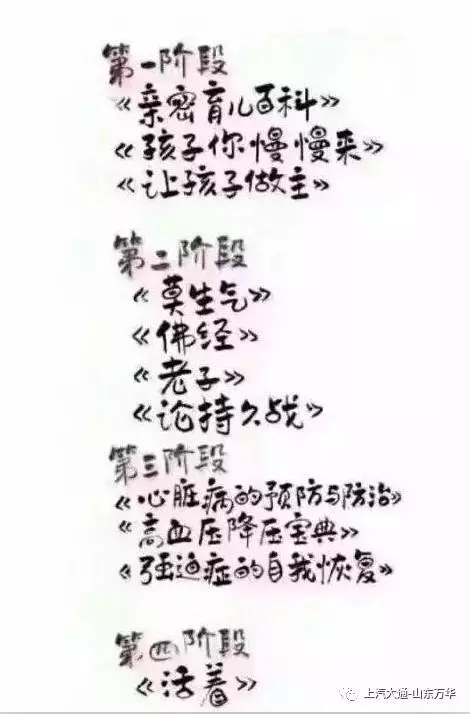 第一阶段
《亲密育儿百科》
《孩子你慢慢来》
《让孩子做主》
第二阶段
《莫生气》
《佛经》
《老子》
《论持久战》
第三阶段
《心脏病的预防与防治》
《高血压降压宝典》
《强迫症的自我恢复》
第四阶段
《活着》
上汽大通-山东万华